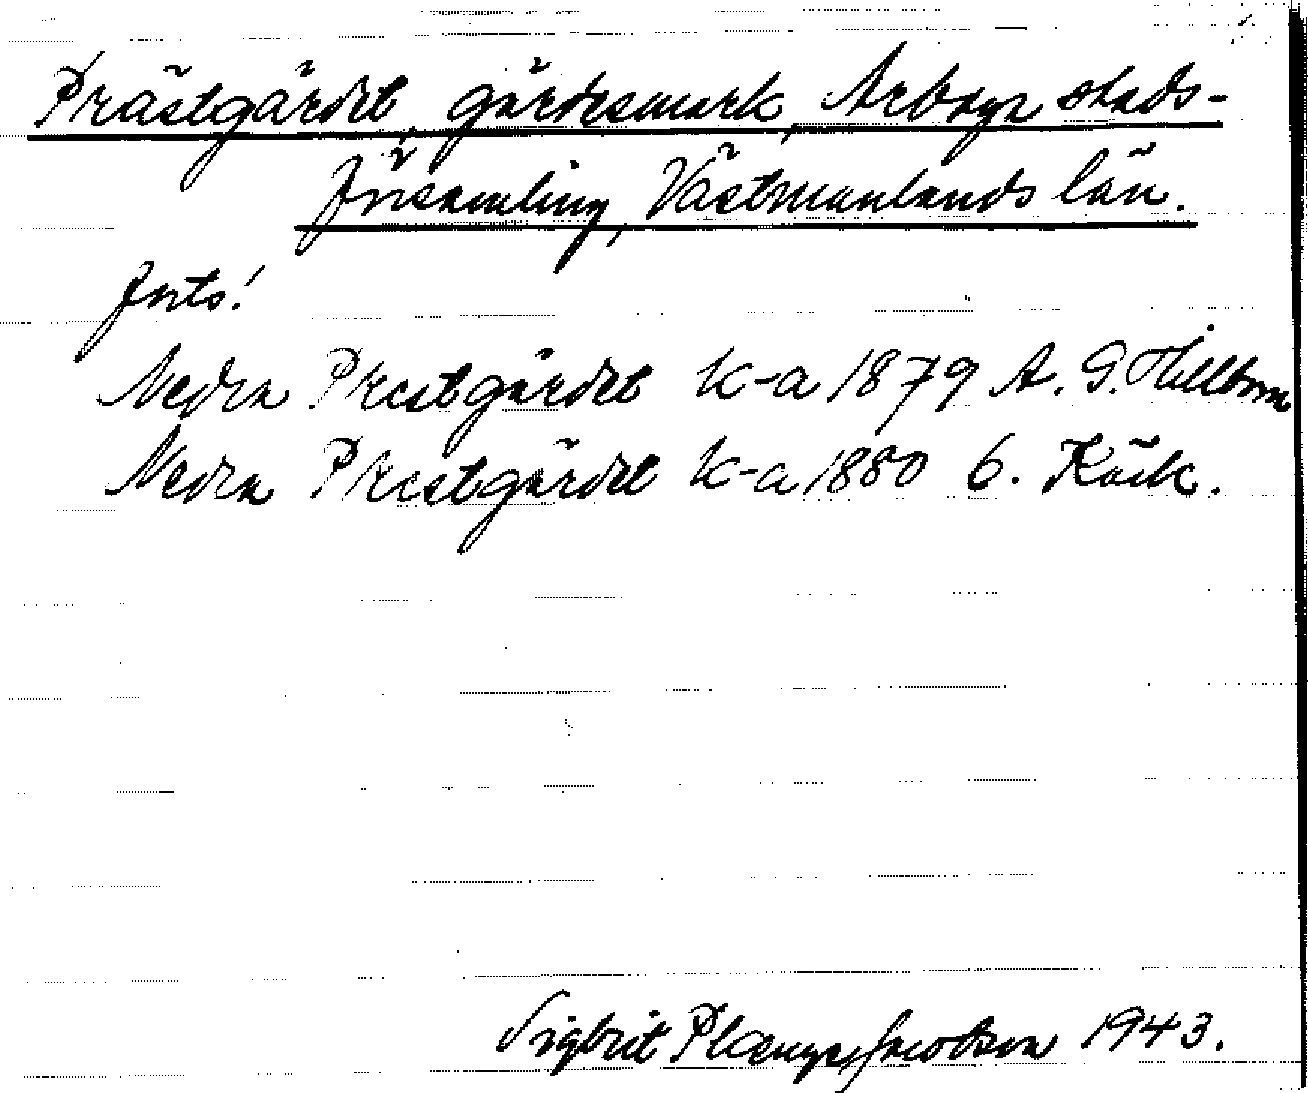 Prästgärdet, gärdesmark, Arboga stads-
församling, Västmanlands län.
forts!
Nedra Prestgärdet k-a 1879 A. G. Hellbom
Nedra Prestgärdet k-a 1880 6. Käck.
Sigbrit Plænge Jacobson 1943.